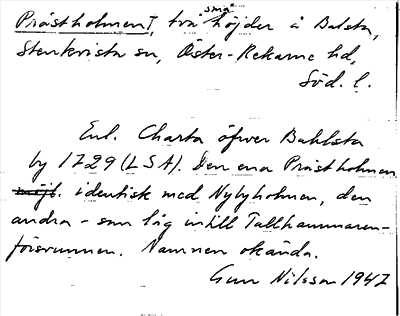 Prästholmen I, två små höjder i Balsta,
Stenkvista sn, Öster-Rekarne hd,
Söd. l.
Enl. Charta öfwer Bahlsta
by 1729 (LSA). Den ena Prästholmen
möjl. identisk med Nybyholmen, den
andra - som låg intill Tallhammaren-
försvunnen. Namnen okända.
Gun Nilsson 1947